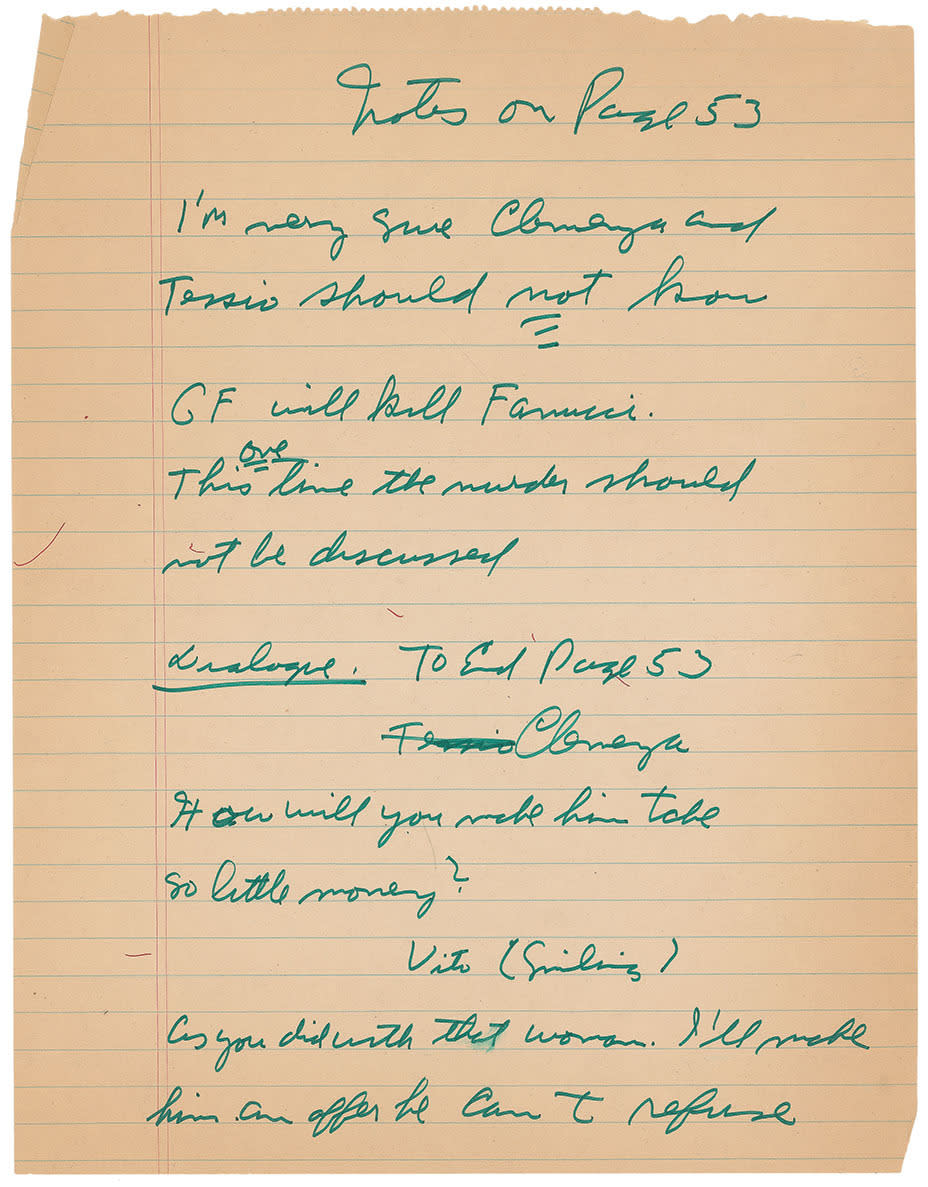 Notes on Page 53
I'm very sure Clemenza and
Tessio should not know
GF will kill Fanucci.
one
This time the murder should
not be discussed
Dialogue. To End Page 53
Tessio Clemenza
How will you make him take
so little money?
Vito (Smiling)
As you did with that woman. I'll make
him an offer he can't refuse